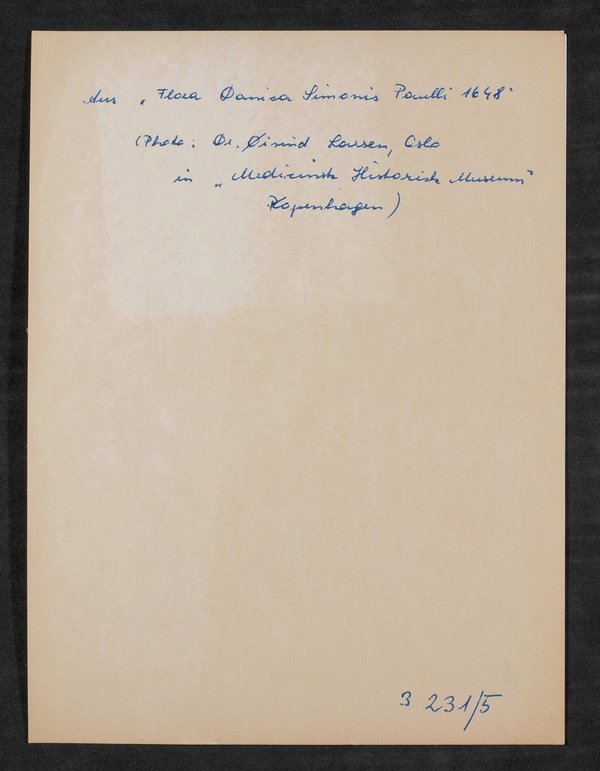 Aus „Flora Danica Simonis Paulli 1648"
(Photo: Dr. Øivind Larsen, Oslo
in „Medicinsk Historisk Museum"
Kopenhagen)
3 231/5